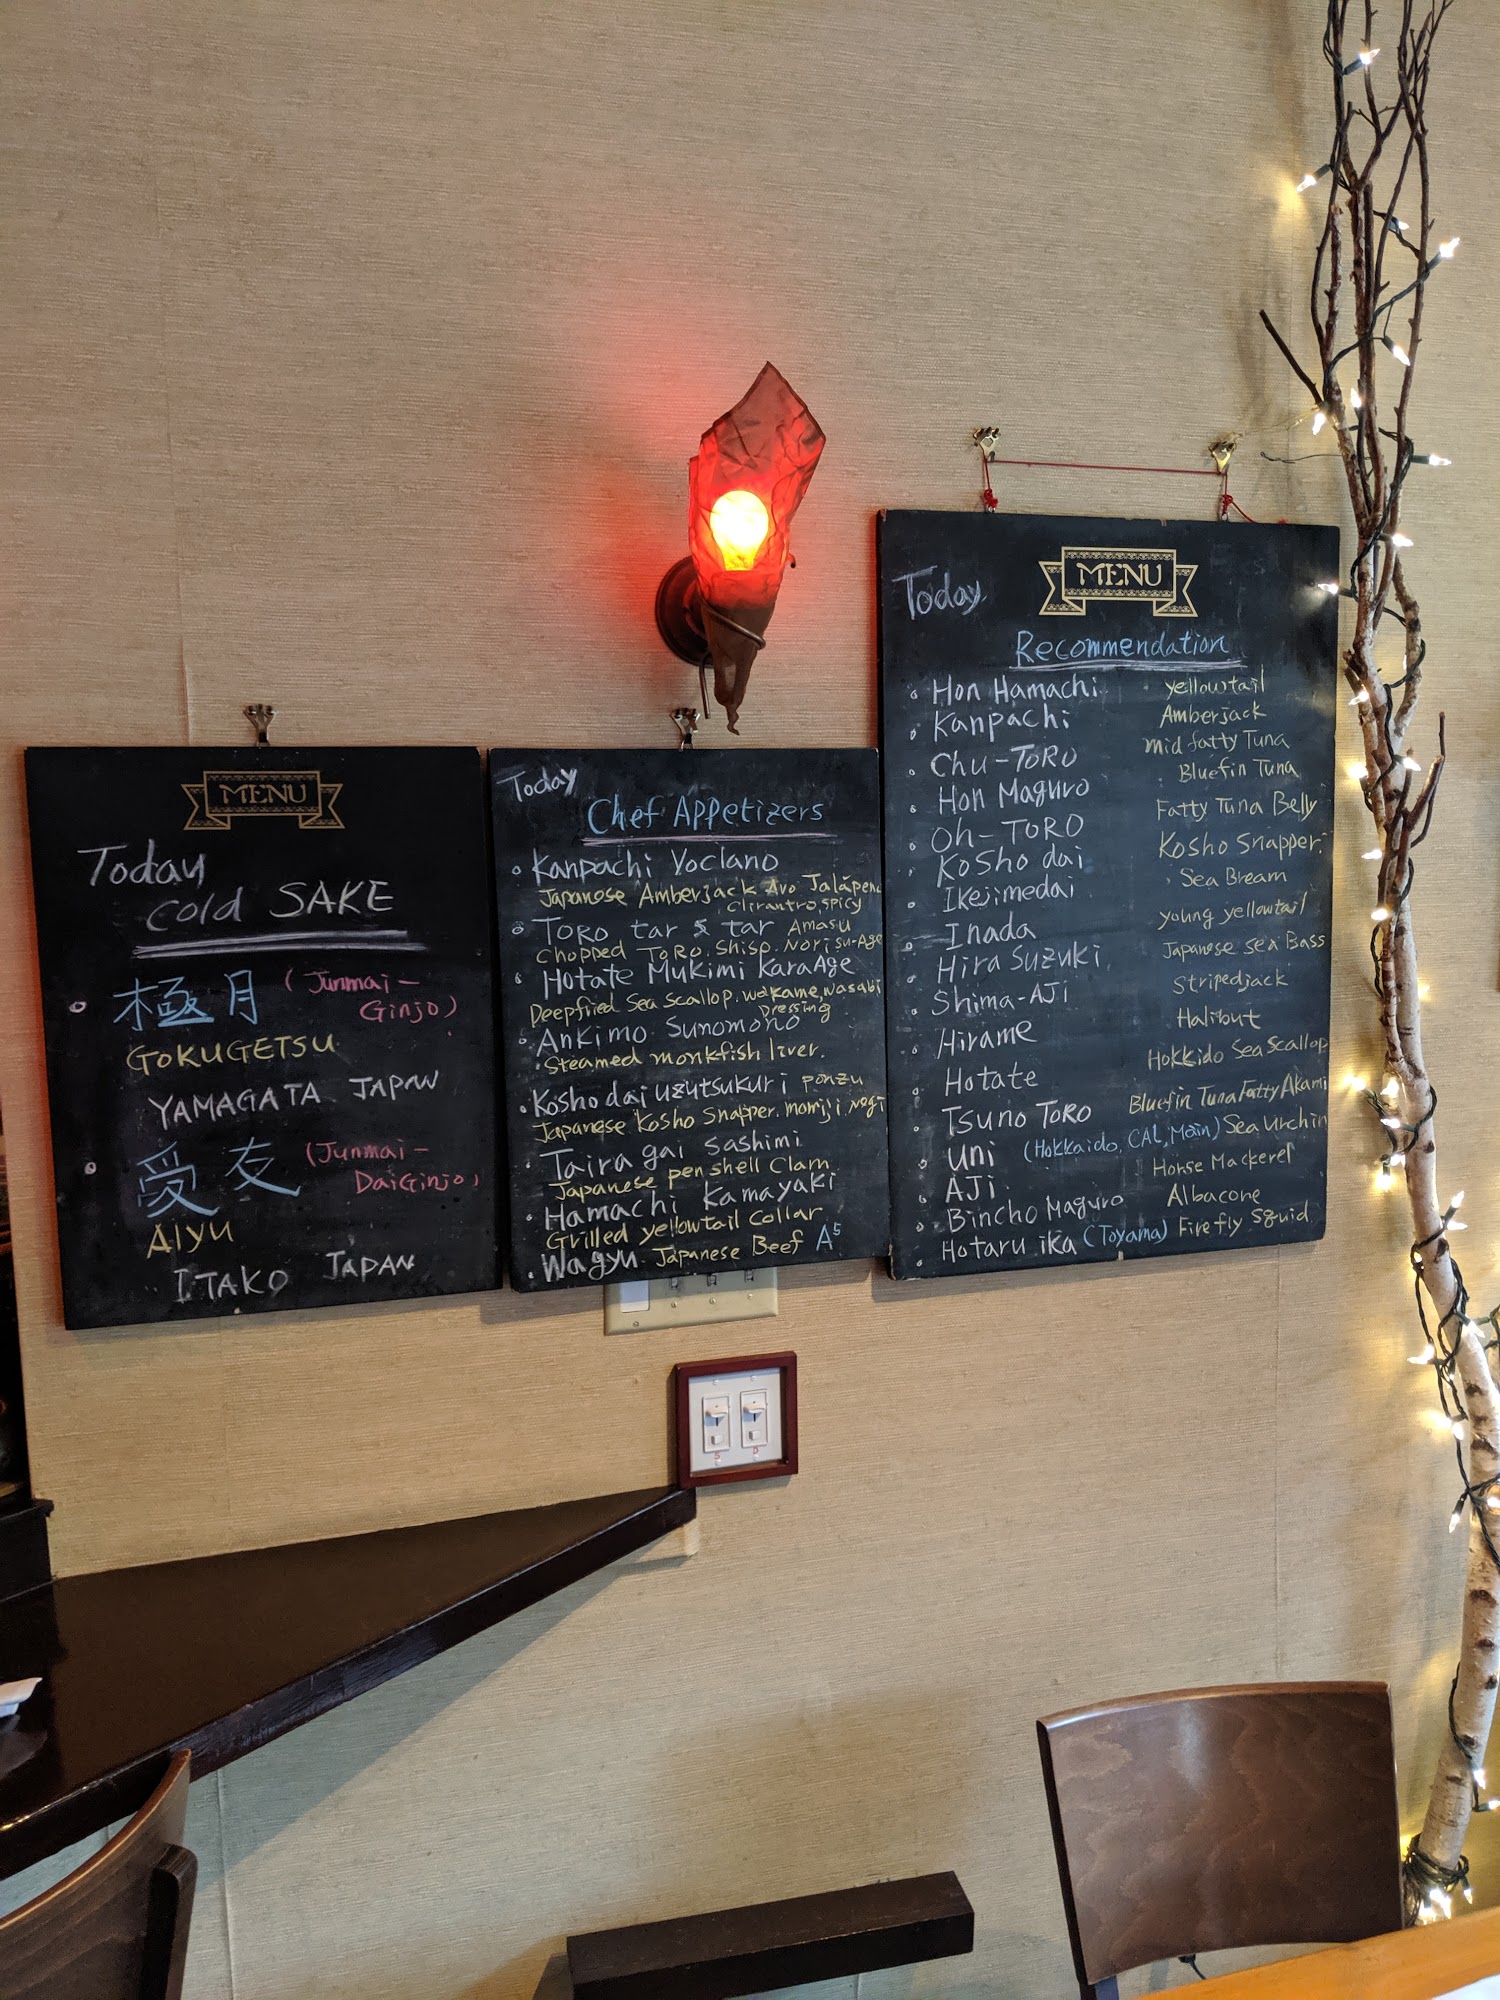 MENU
Today
Cold SAKE
極月 (Junmai-
Ginjo)
GOKUGETSU
YAMAGATA JAPAN
愛友 (Junmai-
DaiGinjo)
AIYU
ITAKO JAPAN
Today
Chef Appetizers
Kanpachi Yoclano
Japanese Amberjack Avo Jalapeno
Clirantro, spicy
TORO tar & tar Amasu
Chopped TORO. Shiso. Nori su-Age
Hotate Mukimi KaraAge
Deepfried Sea Scallop. wakame, wasabi
Dressing
Ankimo Sunomono
Steamed monkfish liver.
Kosho dai uzutsukuri ponzu
Japanese Kosho Snapper. momiji. Negi
Taira gai Sashimi
Japanese pen shell Clam
Hamachi Kamayaki
Grilled yellowtail Collar
Wagyu Japanese Beef A5
MENU
Today
Recommendation
Hon Hamachi yellowtail
Kanpachi Amberjack
Chu-TORO mid fatty Tuna
Hon Maguro Bluefin Tuna
Oh-TORO Fatty Tuna Belly
Kosho dai Kosho Snapper
Ikejimedai Sea Bream
Inada young yellowtail
Hira Suzuki Japanese Sea Bass
Shima-AJi Stripedjack
Hirame Halibut
Hotate Hokkido Sea Scallop
Tsuno TORO Bluefin Tuna Fatty Akami
Uni (Hokkaido, CAL, Main) Sea urchin
AJi Horse Mackerel
Bincho Maguro Albacone
Hotaru ika (Toyama) Firefly Squid